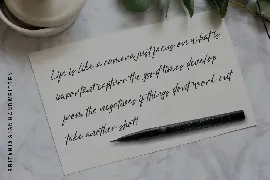 Life is like a camera just focus on what's
important capture the good times develop
from the negatives if things don't work out
take another shot!
BRITANNIA SIGNHANDWRITTEN